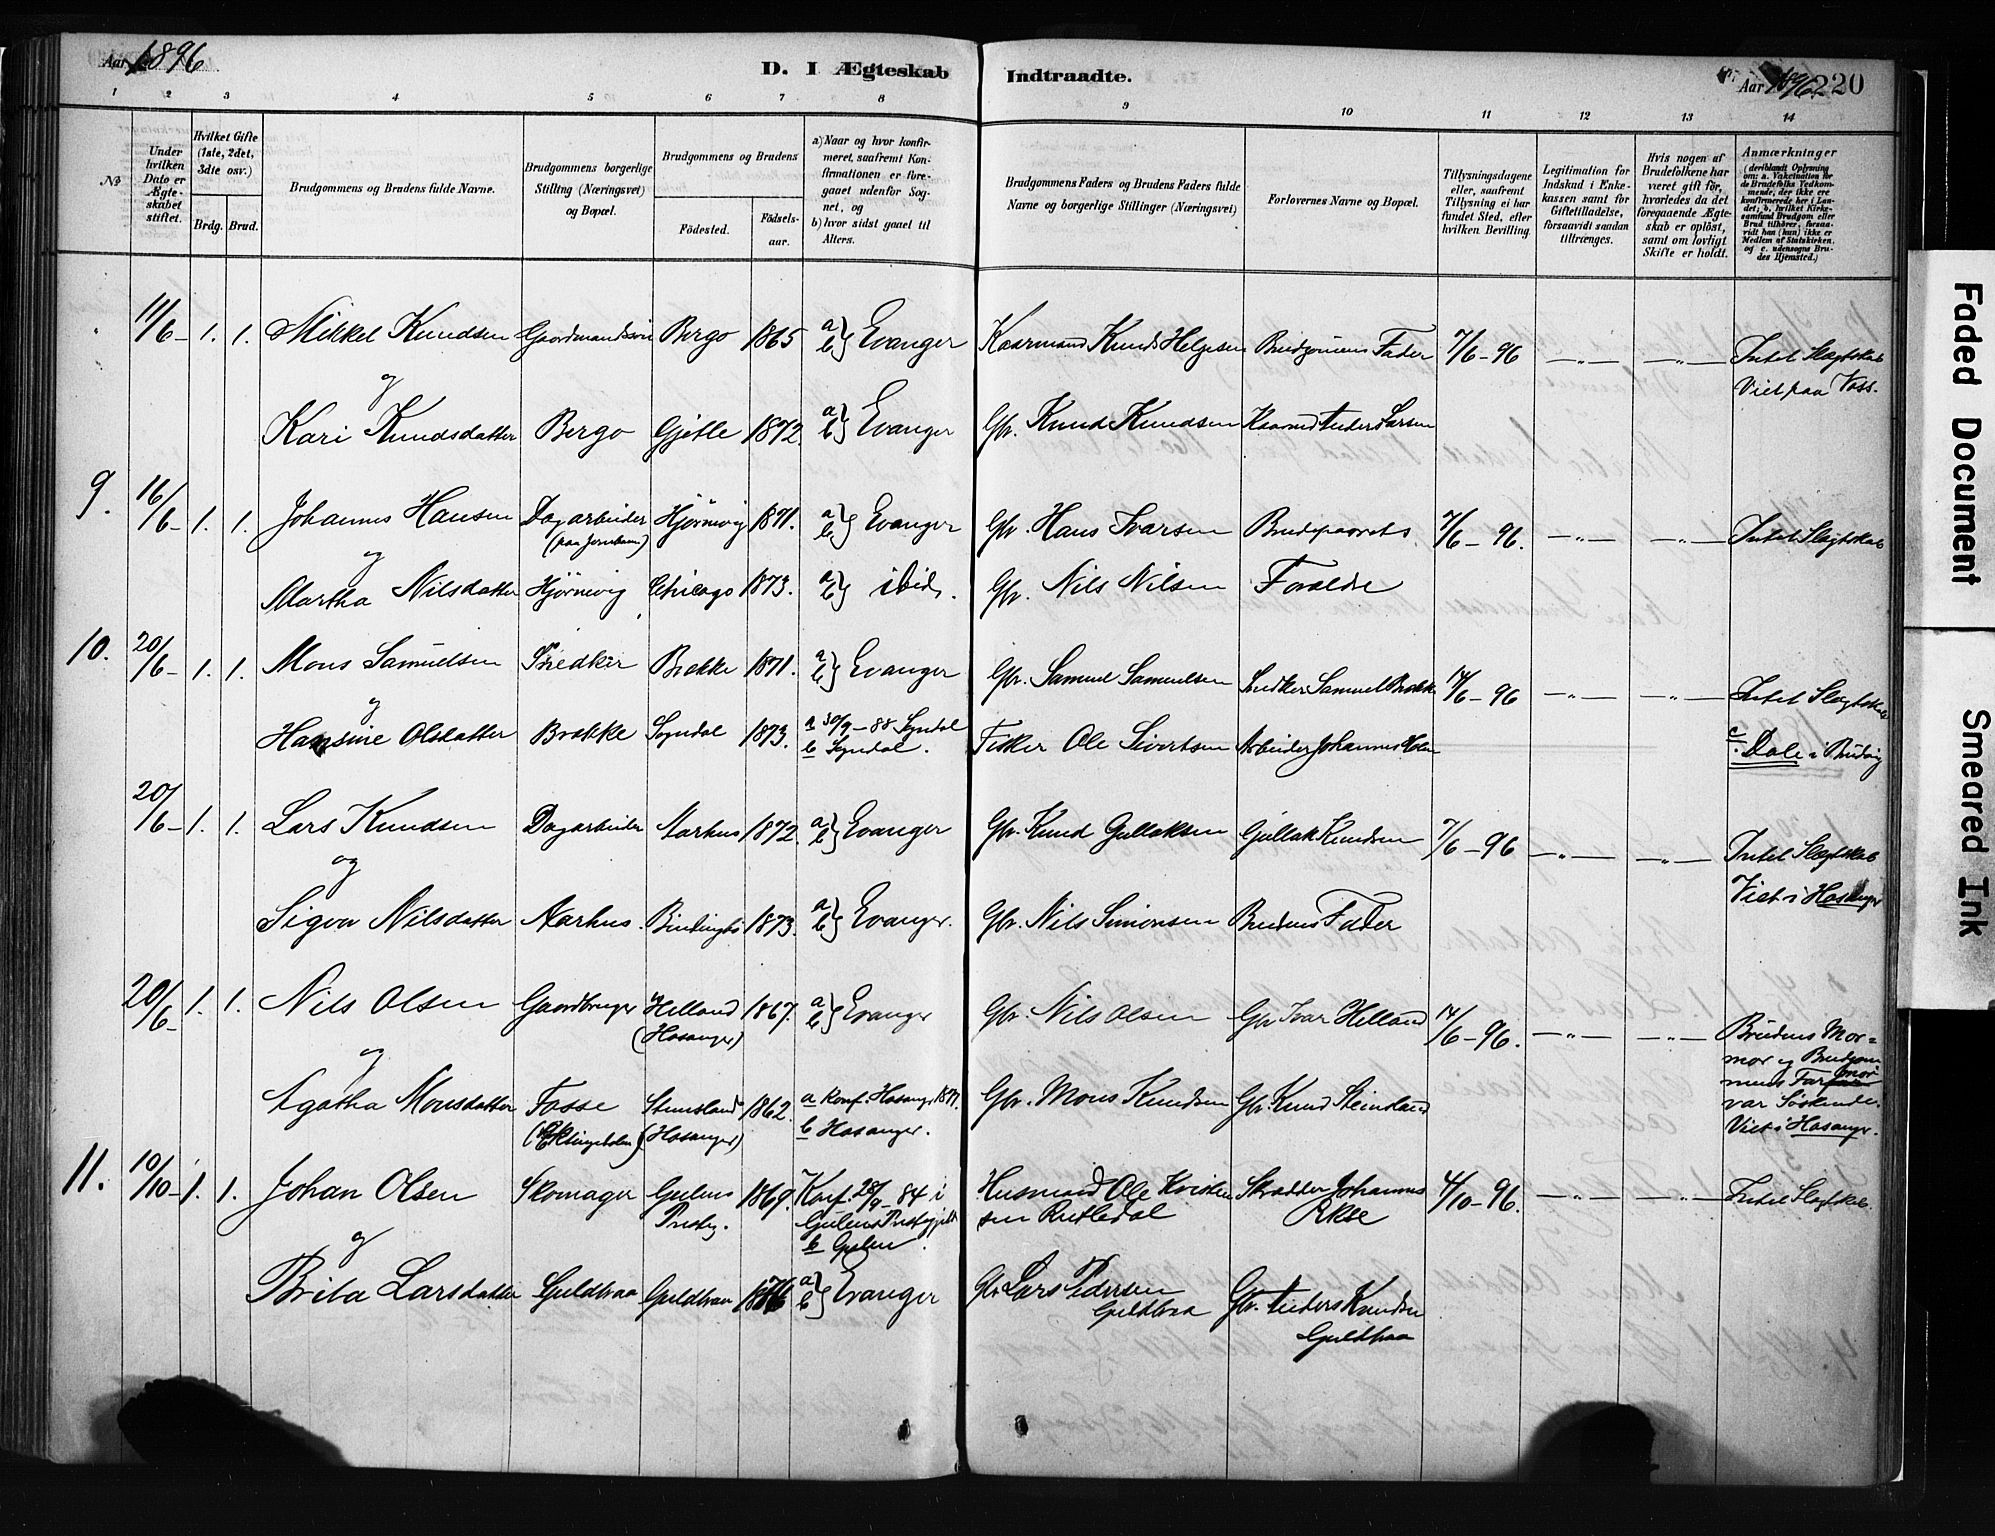 Aar 1896
D. I Ægteskab Indtraadte.
Aar 1896 220
1 2 3 4 5 6 7 8 9 10 11 12 13 14
№
Under hvilken Dato er Ægteskabet stiftet.
Hvilket Gifte (1ste, 2det, 3die osv.)
Brdg. Brud.
Brudgommens og Brudens fulde Navne.
Brudgommens borgerlige Stilling (Næringsvei) og Bopæl.
Brudgommens og Brudens
Födested.
Födselsaar.
a) Naar og hvor konfirmeret, saafremt Konfirmationen er foregaaet udenfor Sognet, og
b) hvor sidst gaaet til Alters.
Brudgommens Faders og Brudens Faders fulde Navne og borgerlige Stillinger (Næringsvei)
Forlovernes Navne og Bopæl.
Tillysningsdagene eller, saafremt Tillysning ei har fundet Sted, efter hvilken Bevilling
Legitimation for Indskud i Enkekassen samt for Giftetilladelse, forsaavidt saadan tiltrænges.
Hvis nogen af Brudefolkene har været gift för, hvorledes da det foregaaende Ægteskab er oplöst, samt om lovligt Skifte er holdt.
Anmærkninger
(deriblandt Oplysning om: a. Vakcination for de Brudefolks Vedkommende, der ikke ere konfirmerede her i Landet; b. hvilket Kirkesamfund Brudgom eller Brud tilhörer, forsaavidt han (hun) ikke er Medlem af Statskirken. og c. udensogns Brudes Hjemsted.)
11/6 - 1. 1. Mikkel Knudsen Gaardmandssön Bergo 1865 a} b} Evanger Kaarmand Knud Helgesen Brudgomens Fader 7/6-96 —„— —„— Intet Slægtskab
og Viet paa Voss.
Kari Knudsdatter Bergo Gjötle 1872. a} b} Evanger Gbr. Knud Knudsen Kaarmd Anders Larsen
9. 16/6 - 1. 1. Johannes Hansen Dagarbeider Hjörnevig 1871. a} b} Evanger Gbr. Hans Ivarsen Brudeparrets 7/6-96. —„— —„— Intet Slægtskab
(paa Jernbanen)
og
Martha Nilsdatter Hjörnevig Chicago 1873. a} b} ibid. Gbr. Nils Nilsen Forældre
10. 20/6 - 1. 1. Mons Samuelsen Snedker Brække 1871. a} b} Evanger Gbr. Samuel Samuelsen Snedker Samuel Brække 14/6-96 —„— —„— Intet Slægtskab
og
Hansine Olsdatter Brække Sogndal 1873. a 30/9-88 Sogndal b Sogndal. Fisker Ole Sivertsen Arbeider Johannes Holm c. Dale i Bruvig
20/6 - 1. 1. Lars Knudsen Dagarbeider Aarhus 1872. a} b} Evanger Gbr. Knud Gullaksen Gullak Knudsen 7/6-96 —„— —„— Intet Slægtskab
og Viet i Hosanger
Sigva Nilsdatter Aarhus. 1873. a} b} Evanger. Gbr. Nils Simonsen Brudens Fader
20/6 - 1. 1. Nils Olsen Gaardbruger Helland (Hosanger) 1867. a} b} Evanger Gbr. Nils Olsen Gbr Ivar Helland 14/6-96. —„— —„— Brudens Mormor og Brudgommens Farmor var Söskende. Viet i Hosanger.
og
Agatha Monsdatter Fosse Stemsland (Hosanger) 1862. a Konf. Hosanger b Hosanger. Gbr. Mons Knudsen Gbr. Knud Steinland
11. 10/10 - 1. 1. Johan Olsen Skomager Gulens Præstg. 1869. Konf. 28/9-84 i Gulens Præstegjeld b Gulen. Husmand Ole Kristensen Rutledal Skrædder Johannes Ekse 4/10-96. —„— —„— Intet Slægtskab.
og
Brita Larsdatter Guldbraa Guldbraa 1876 a} b} Evanger Gbr Lars Pedersen Guldbraa Gbr. Anders Knudsen Guldbraa
Faded Document
Smeared Ink